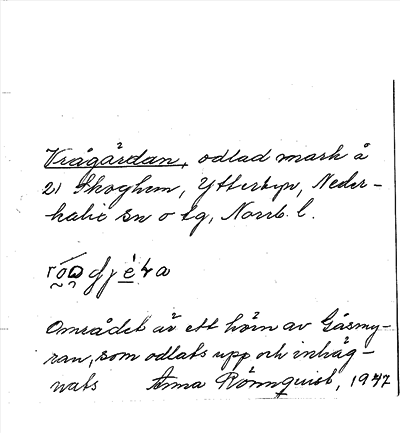 Vrågårdan, odlad mark å
21 Skoghem, Ytterbyn, Neder-
kalix sn o tg, Norrb. l.
Området är ett hörn av Gåsmy-
ran, som odlats upp och inhäg-
nats Anna Rönnquist, 1947